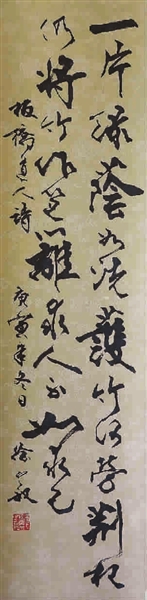 一片綠蔭如洗護竹何勞荆杞
仍將竹作笆籬求人不如求己
板橋道人詩 庚寅年冬日